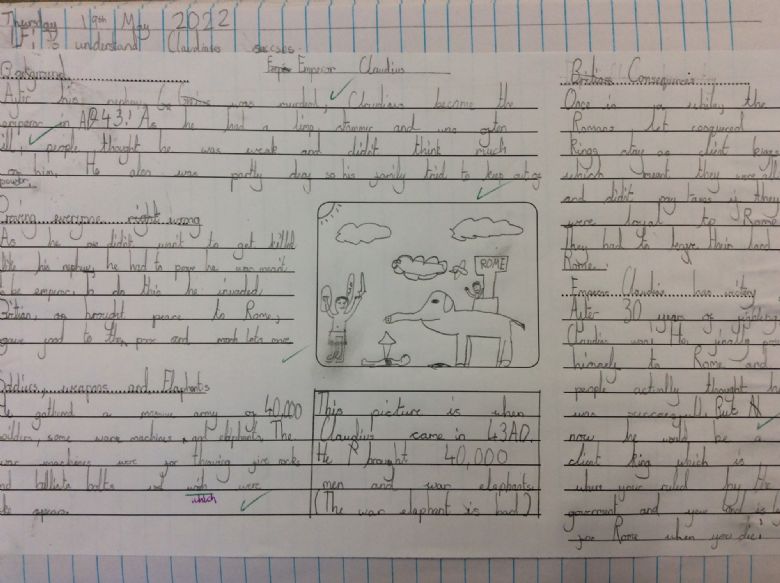 Thursday 19th May 2022
LF: to understand Claudius's success
Emperor Claudius
Background
After his nephew was murdered, Claudius became the
emperor in AD43! As he had a limp, stammer and was often
ill, people thought he was weak and didn't think much
of him. He also was partly deaf so his family tried to keep out of
power.
Proving everyone right wrong
As he didn't want to get killed
like his nephew, he had to prove he was meant
to be emperor. To do this he invaded
Britian, brought peace to Rome,
gave food to the poor and much lots more
Soldiers, weapons and Elephants
He gathered a massive army of 40,000
soilders, some war machines, and elephants. The
war machines were for throwing fire rocks
and ballista bolts wich were
which
like spears.
ROME
This picture is when
Claudius came in 43AD.
He brought 40,000
men and war elephants.
(The war elephant is bad)
Consequences
Once in a while, the
Romans let conquered
kings stay as client kings
which meant they were all
and didn't pay taxes if they
were loyal to Rome
they had to leave their land
Rome.
Emperor Claudius has victory
After 30 years of fighting
Claudius won! He finally
himself to Rome and
people actually thought he
was successful. But
now he would be a
client king which is
where your ruled by the
goverment and your land is
for Rome when you die!